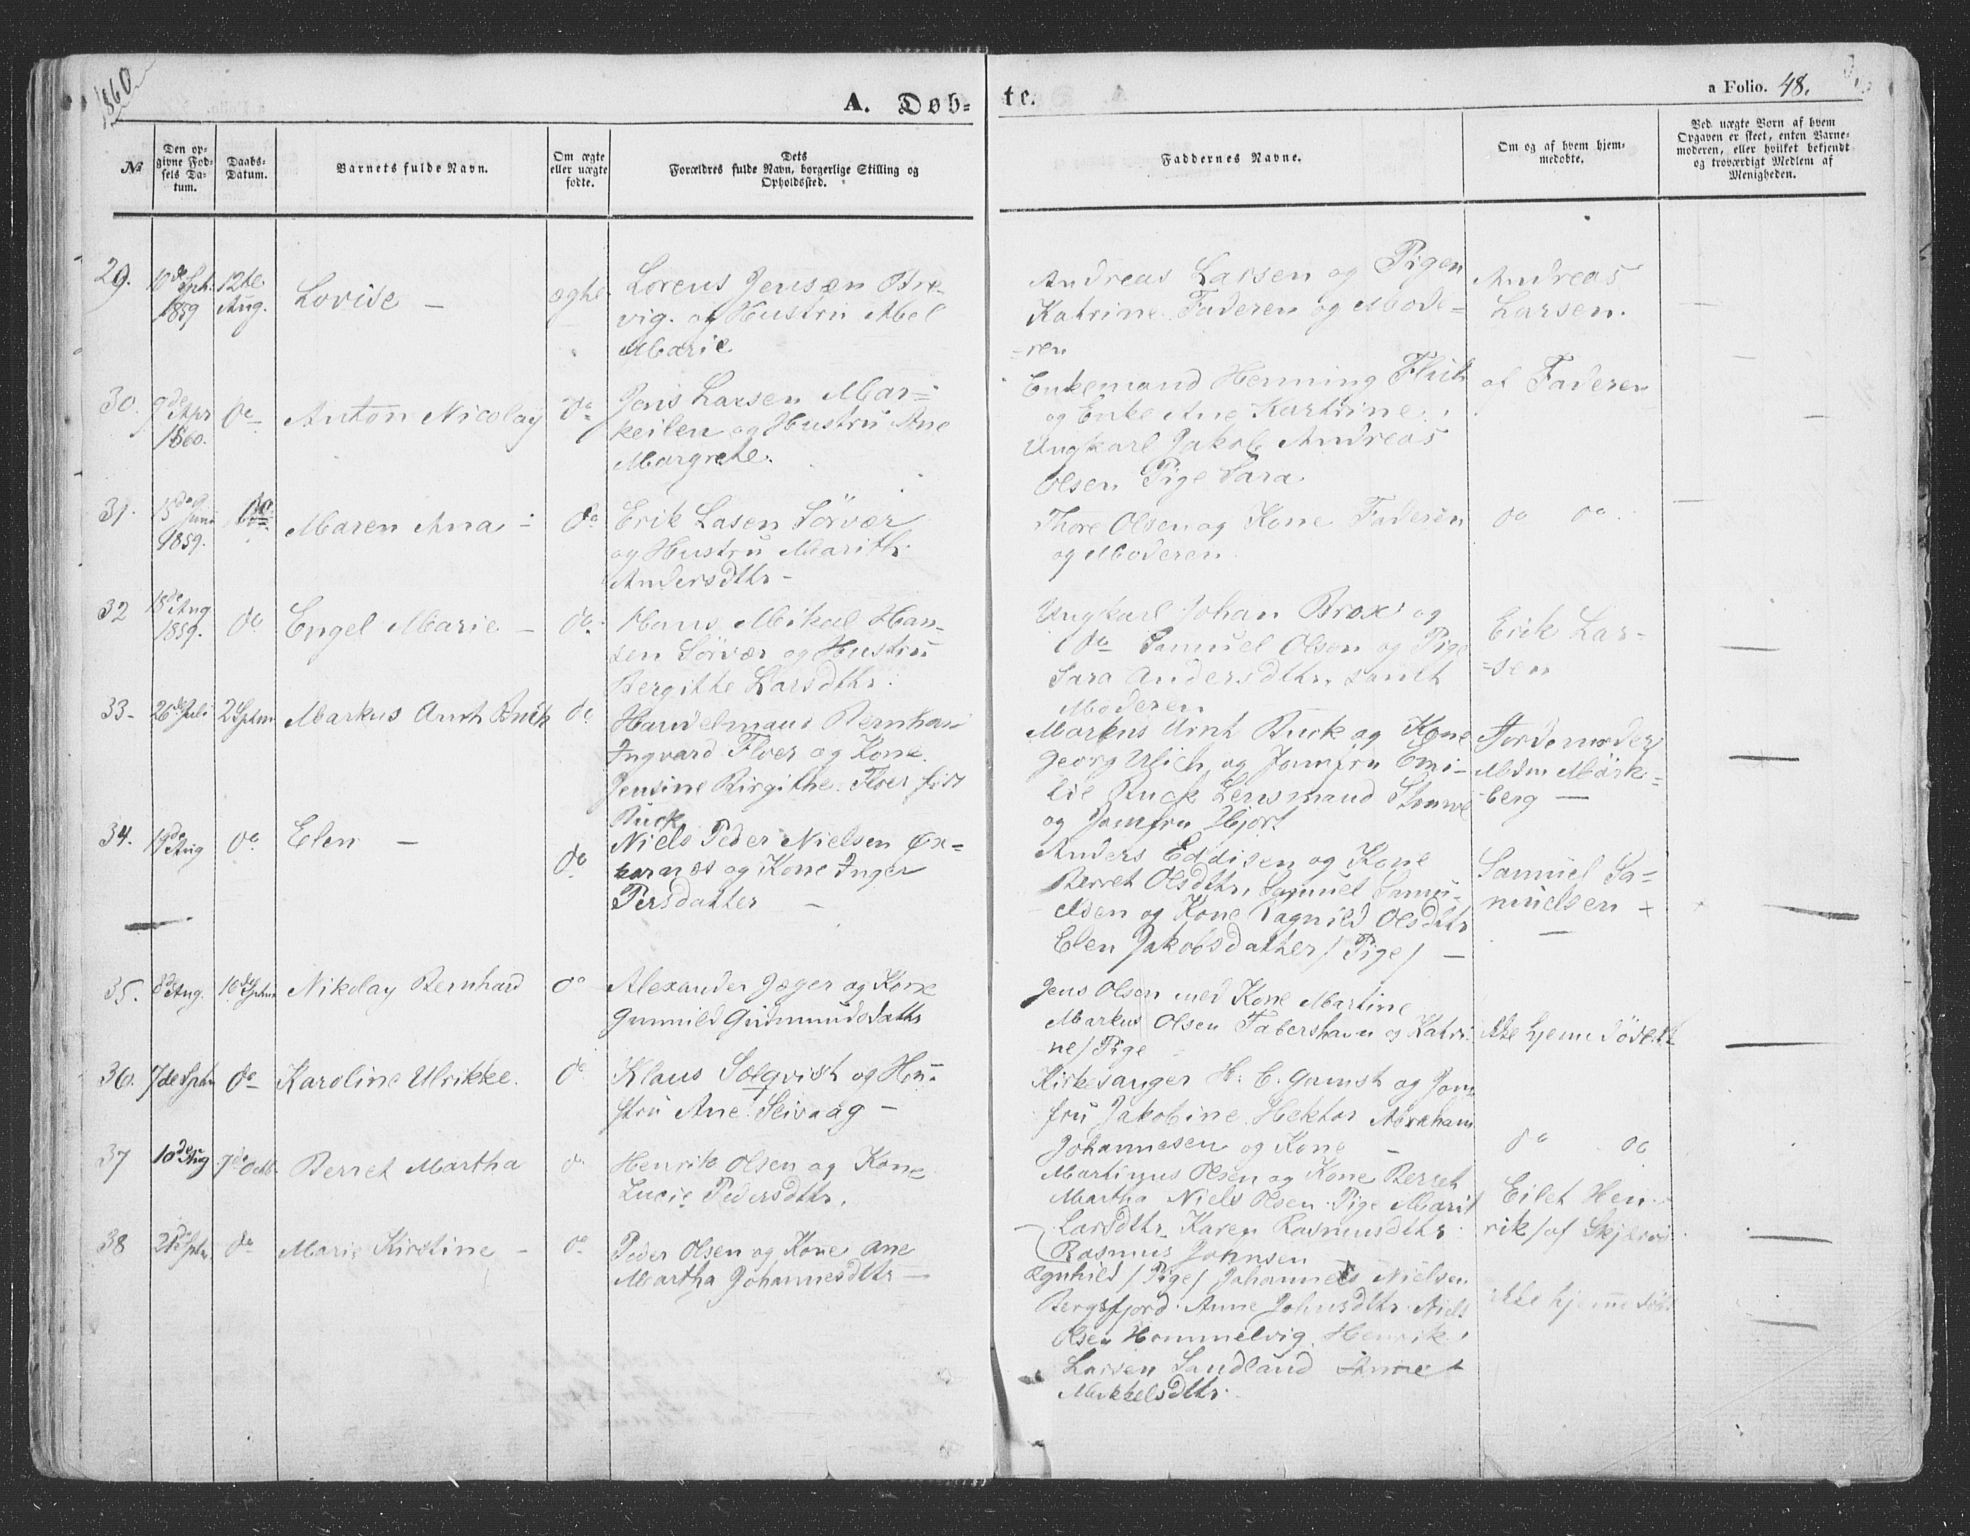 1860
A. Døb-
te.
a Folio. 48.
No
Den op-
givne Fød-
sels Da-
tum.
Daabs-
Datum.
Barnets fulde Navn.
Om ægte
eller uægte
fødte.
Dets
Forældres fulde Navn, borgerlige Stilling og
Opholdssted.
Faddernes Navne.
Om og af hvem hjem-
medøbte.
Ved uægte Børn af hvem
Opgaven er skeet, enten Barne-
moderen, eller hvilket bekjendt
og troværdigt Medlem af
Menigheden.
29.
10de Sph.
1859
12te
Aug.
Lovise —
ægte
Lorens Jensen Bre-
vig. og Hustru Abel
Marie
Andreas Larsen og Pigen
Katrine Faderen og Mode-
-ren
Andreas
Larsen.
30.
9de Apr
1860.
do
Anton Nicolay
do
Jens Larsen Mar-
keilen og Hustru Ane
Margrete.
Enkemand Henning
og Enke Ane Kartrine.
Ungkarl Jakob Andreas
Olsen Pige Sara
af Faderen
31.
15de Juni
1859.
do
Maren Ana -
do
Erik Lasen Sörvær
og Hustru Marith
Andersdttr -
Thore Olsen og Kone Faderen
og Moderen.
do do
32
18de Aug
1859.
do
Engel Marie -
do
Hans Mikal Han-
sen Sörvær og Hustru
Bergitte Larsdttr.
Ungkarl Johan Brox og
do Samuel Olsen og Pige
Sara Andersdttr. samt
Moderen
Erik Lar-
-sen
33-
26de Juli
2 Sptm
Markus Arnt Buck
do
Handelmand Bernhar
Ingvard Floer og Kone
Jensine Birgithe Floer föd
Buck
Markus Arnt Buck og Kone
Georg Ulich og Jomfru Emi-
lie Buck Lensmand
og Jomfru Hjort
Jordemoder
Mdm Mörk-
-berg —
34.
19de Aug
do
Elen —
do
Niels Peder Nielsen Øx-
karnæs og Kone Inger
Persdatter —
Anders Eddisen og Kone
Berret Olsdttr, Samuel Samu-
elsen og Kone Ragnild Olsdttr
Elen Jakobsdatter / Pige / —
Samuel Sa-
muelsen +
35.
8de Aug.
16de Sptm
Nikolay Bernhard
do
Alexander Jæger og Kone
Gunnild Gudmundsdattr
Jens Olsen med Kone Martine
Markus Olsen Tabershavn og Katri-
ne / Pige
Ikke hjemmedöbt
36.
7de Sptm
do
Karoline Ulrikke.
do
Klaus Solqvist og Hu-
stru Ane Seivaag —
Kirkesanger H. C. Gamst og Jom
fru Jakobine Hektor Abraham
Johannesen og Kone —
do do
37
10de Aug
7de Octb
Berret Martha
do
Henrik Olsen og Kone
Lucie Pedersdttr.
Martinus Olsen og Kone Berret
Martha Niels Olsen Pige Marit
Larsdttr Karen Rasmusdttr
Rasmus Johnsen
Eilet Hen-
rik / af Skjervö
38
do
Marie Kirstine —
do
Peder Olsen og Kone Ane
Martha Johannesdttr —
Ragnhild / Pige / Johannes Nielsen
Bergsfjord. Anne Johnsdttr Niels
Olsen Hommelvig. Henrik
Larsen Sandland Anne
Mikkelsdttr.
ikke hjemmedöbt